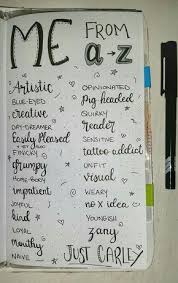 ME FROM
a → z
Artistic
BLUE-EYED
creative
DAY-DREAMER
Easily Pleased
FINICKY
grumpy
HOME-BODY
impatient
JOYFUL
kind
LOYAL
Mouthy
NAIVE
OPINIONATED
Pig headed
QUIRKY
reader
SENSITIVE
tattoo addict
UNFIT
visual
WEARY
no x idea
YOUNGISH
zany
JUST CARLEY